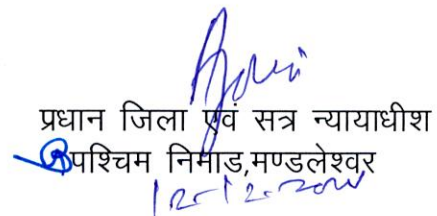 प्रधान जिला एवं सत्र न्यायाधीश
पश्चिम निमाड,मण्डलेश्वर